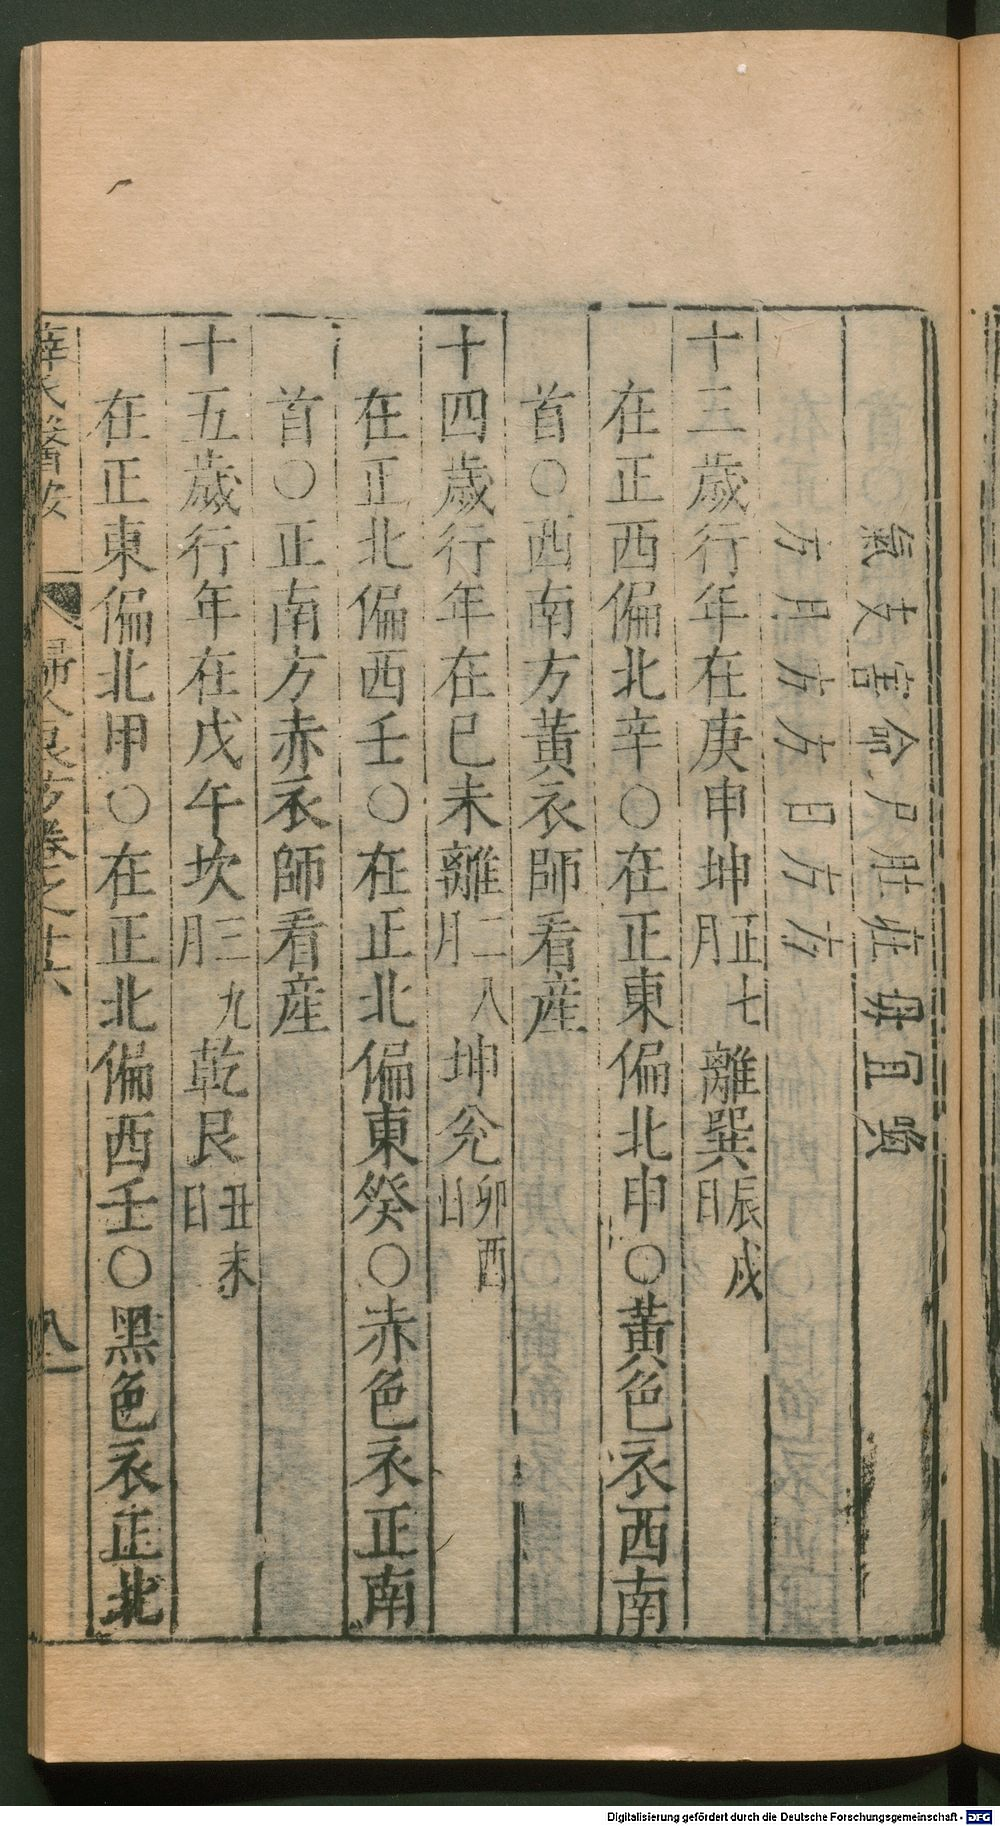 氣支害命尸肚莊母宜
方月方方日方方
十三歲行年在庚申坤正七月離巽辰戌日
在正西偏北辛○在正東偏北申○黃色衣西南
首○西南方黃衣師看産
十四歲行年在已未離二八月坤兊卯酉日
在正北偏西壬○在正北偏東癸○赤色衣正南
首○正南方赤衣師看産
十五歲行年在戊午坎三九月乾艮丑未日
在正東偏北甲○在正北偏西壬○黑色衣正北
薛氏醫按 婦人良方卷之廿六 八
Digitalisierung gefördert durch die Deutsche Forschungsgemeinschaft - DFG